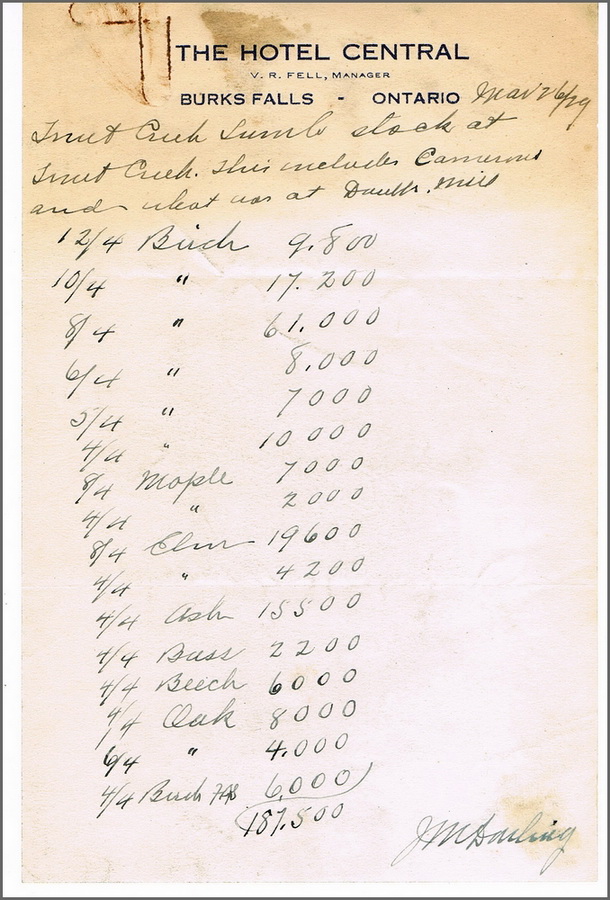 THE HOTEL CENTRAL
V. R. FELL, MANAGER
BURKS FALLS - ONTARIO Mar 26/29
Trout Creek Lumber stock at
Trout Creek. This includes Camerons
and what was at Mill
12/4 Birch 9.800
10/4 " 17.200
8/4 " 61.000
6/4 " 8.000
5/4 " 7000
4/4 " 10000
8/4 Maple 7000
4/4 " 2000
8/4 Elm 19600
4/4 " 4200
4/4 Ash 15500
4/4 Bass 2200
4/4 Beech 6000
4/4 Oak 8000
6/4 " 4.000
4/4 Birch FAS 6,000
187.500
J M Darling